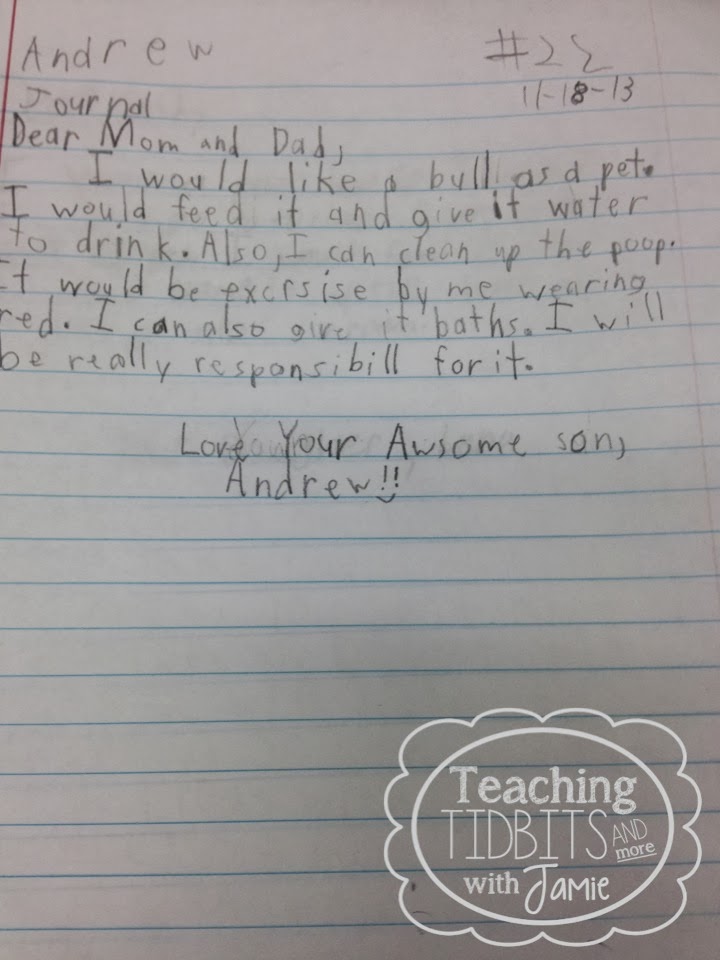 Andrew #22
Journal 11-18-13
Dear Mom and Dad,
I would like a bull as a pet.
I would feed it and give it water
to drink. Also, I can clean up the poop.
It would be excrsise by me wearing
red. I can also give it baths. I will
be really responsibill for it.
Love Your Awsome son,
Andrew!!
Teaching
TIDBITS AND
more
with Jamie